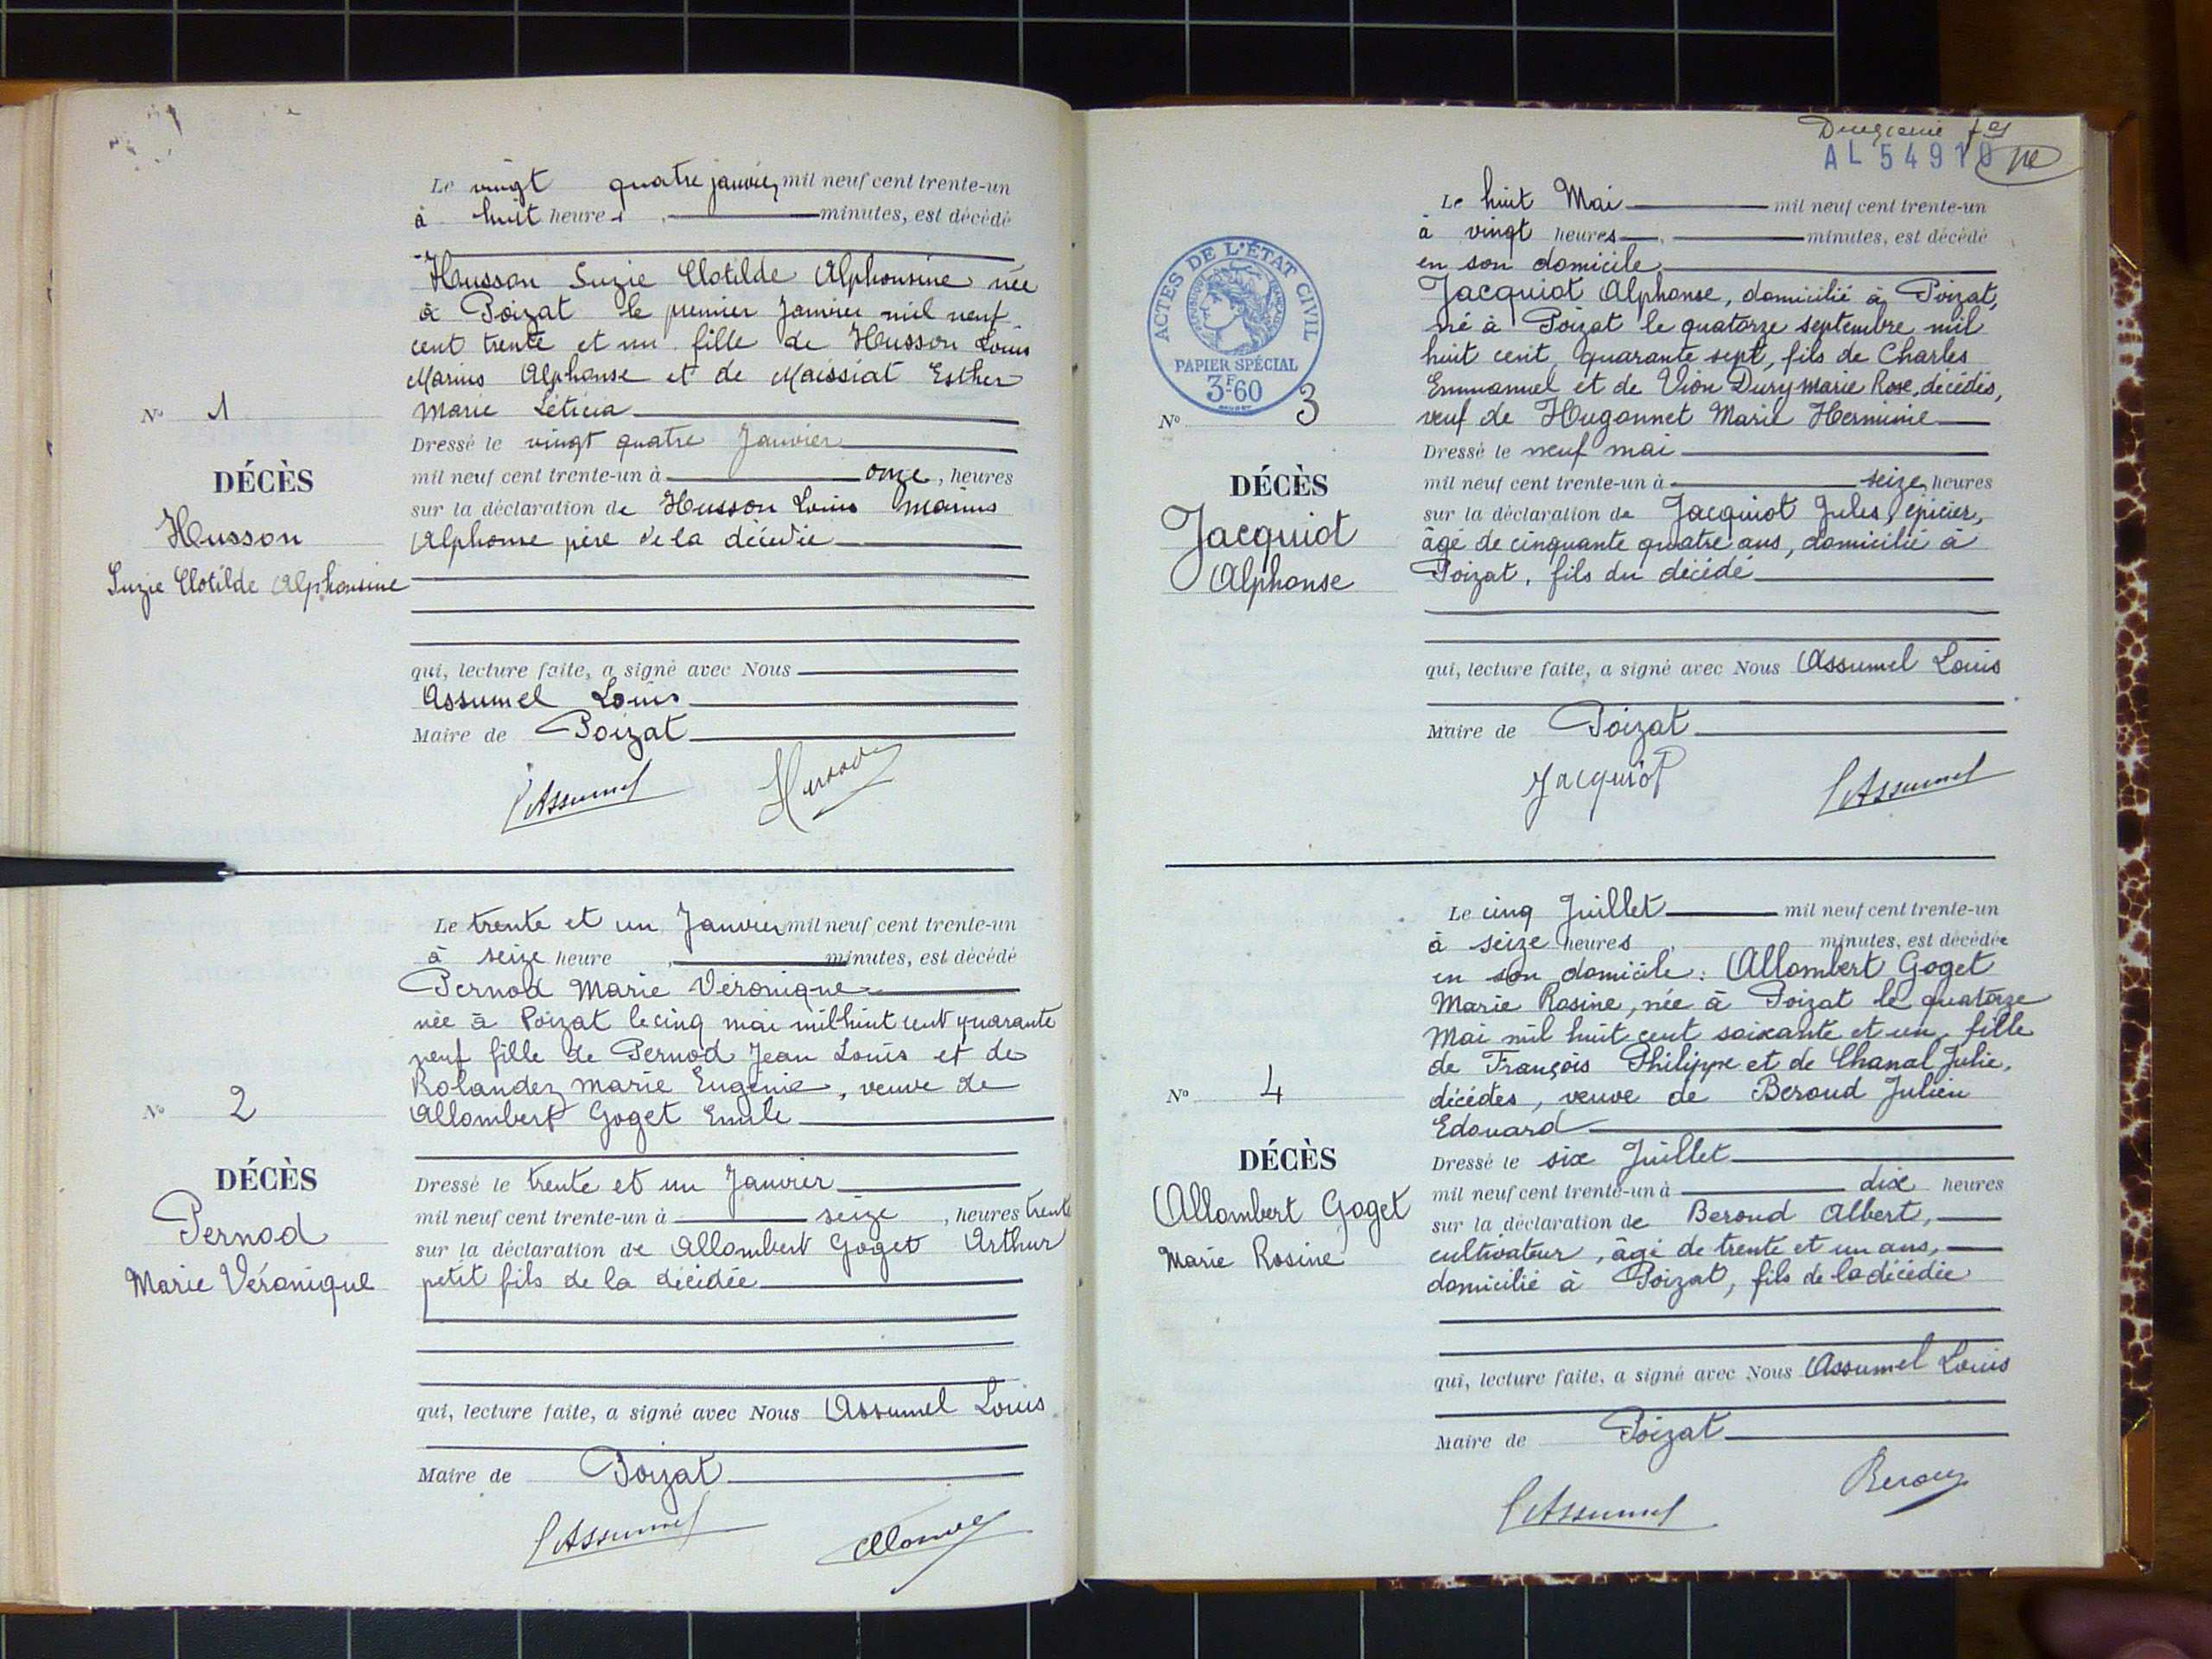 Le vingt quatre janvier mil neuf cent trente-un
à huit heures, minutes, est décédé
Husson Suzie Clotilde Alphonsine née
à Poizat le premier Janvier mil neuf
cent trente et un fille de Husson Louis
Marius Alphonse et de Maissiat Esther
Marie Léticia
Nº 1
Dressé le vingt quatre Janvier
mil neuf cent trente-un à onze, heures
DÉCÈS
sur la déclaration de Husson Louis Marius
Husson
Alphonse père de la décédée
Suzie Clotilde Alphonsine
qui, lecture faite, a signé avec Nous
Assumel Louis
Maire de Poizat
LAssumel Husson
Le trente et un Janvier mil neuf cent trente-un
à seize heure, minutes, est décédé
Pernod Marie Véronique
née à Poizat le cinq mai mil huit cent quarante
neuf fille de Pernod Jean Louis et de
Rolandez Marie Eugénie, veuve de
Nº 2
Allombert Goget Emile
DÉCÈS
Dressé le trente et un Janvier
mil neuf cent trente-un à seize, heures trente
Pernod
sur la déclaration de Allombert Goget Arthur
Marie Véronique
petit fils de la décédée
qui, lecture faite, a signé avec Nous Assumel Louis
Maire de Poizat
LAssumel
AL 54910
Le huit Mai mil neuf cent trente-un
à vingt heures, minutes, est décédé
en son domicile
Jacquiot Alphonse, domicilié à Poizat,
né à Poizat le quatorze septembre mil
huit cent quarante sept, fils de Charles
Emmanuel et de Vion Dury Marie Rose, décédés,
veuf de Hugonnet Marie Herminie
ACTES DE L'ÉTAT CIVIL
PAPIER SPÉCIAL
3F60
Nº 3
Dressé le neuf mai
mil neuf cent trente-un à seize heures
DÉCÈS
sur la déclaration de Jacquiot Jules, épicier,
Jacquiot
âgé de cinquante quatre ans, domicilié à
Alphonse
Poizat, fils du décédé
qui, lecture faite, a signé avec Nous Assumel Louis
Maire de Poizat
Jacquiot LAssumel
Le cinq Juillet mil neuf cent trente-un
à seize heures, minutes, est décédée
en son domicile : Allombert Goget
Marie Rosine, née à Poizat le quatorze
Mai mil huit cent soixante et un, fille
de François Philippe et de Chanal Julie,
Nº 4
décédés, veuve de Beroud Julien
Edouard
DÉCÈS
Dressé le six Juillet
mil neuf cent trente-un à dix heures
Allombert Goget
sur la déclaration de Beroud Albert,
Marie Rosine
cultivateur, âgé de trente et un ans,
domicilié à Poizat, fils de la décédée
qui, lecture faite, a signé avec Nous Assumel Louis
Maire de Poizat
LAssumel Beroud